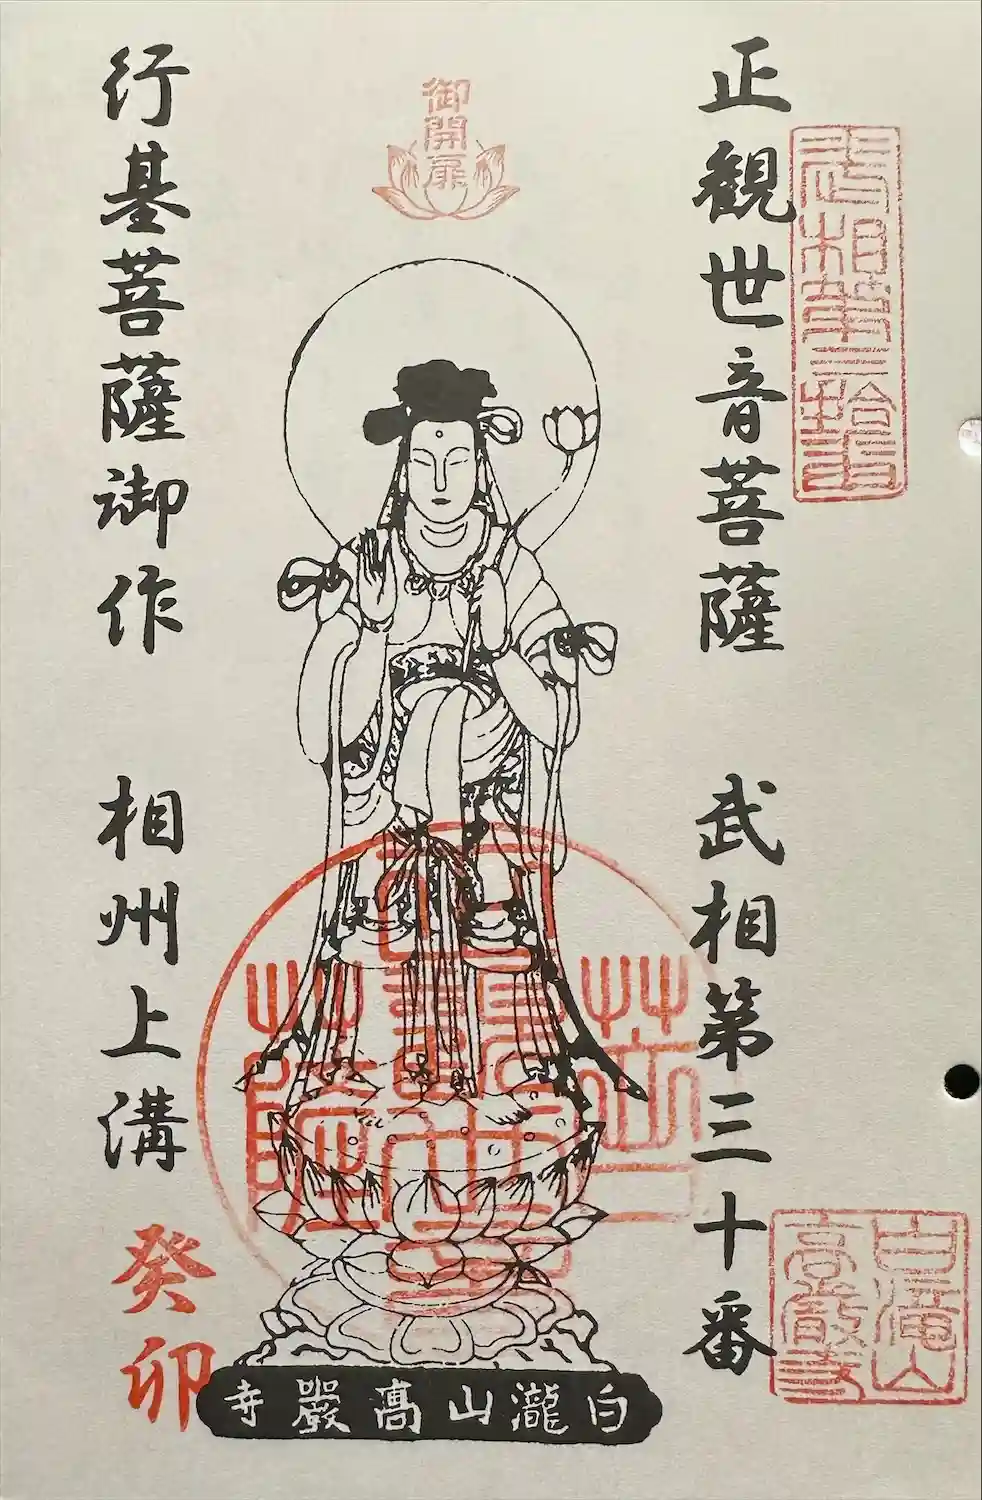 正観世音菩薩 武相第三十番
武相第三拾番
御開扉
行基菩薩御作 相州上溝
癸卯
白瀧山高巖寺
白滝山
高巖寺